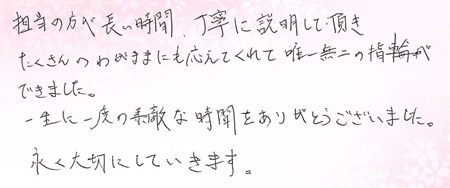 担当の方が長い時間、丁寧に説明して頂き
たくさんのわがままにも応えてくれて唯一無二の指輪が
できました。
一生に一度の素敵な時間をありがとうございました。
永く大切にしていきます。